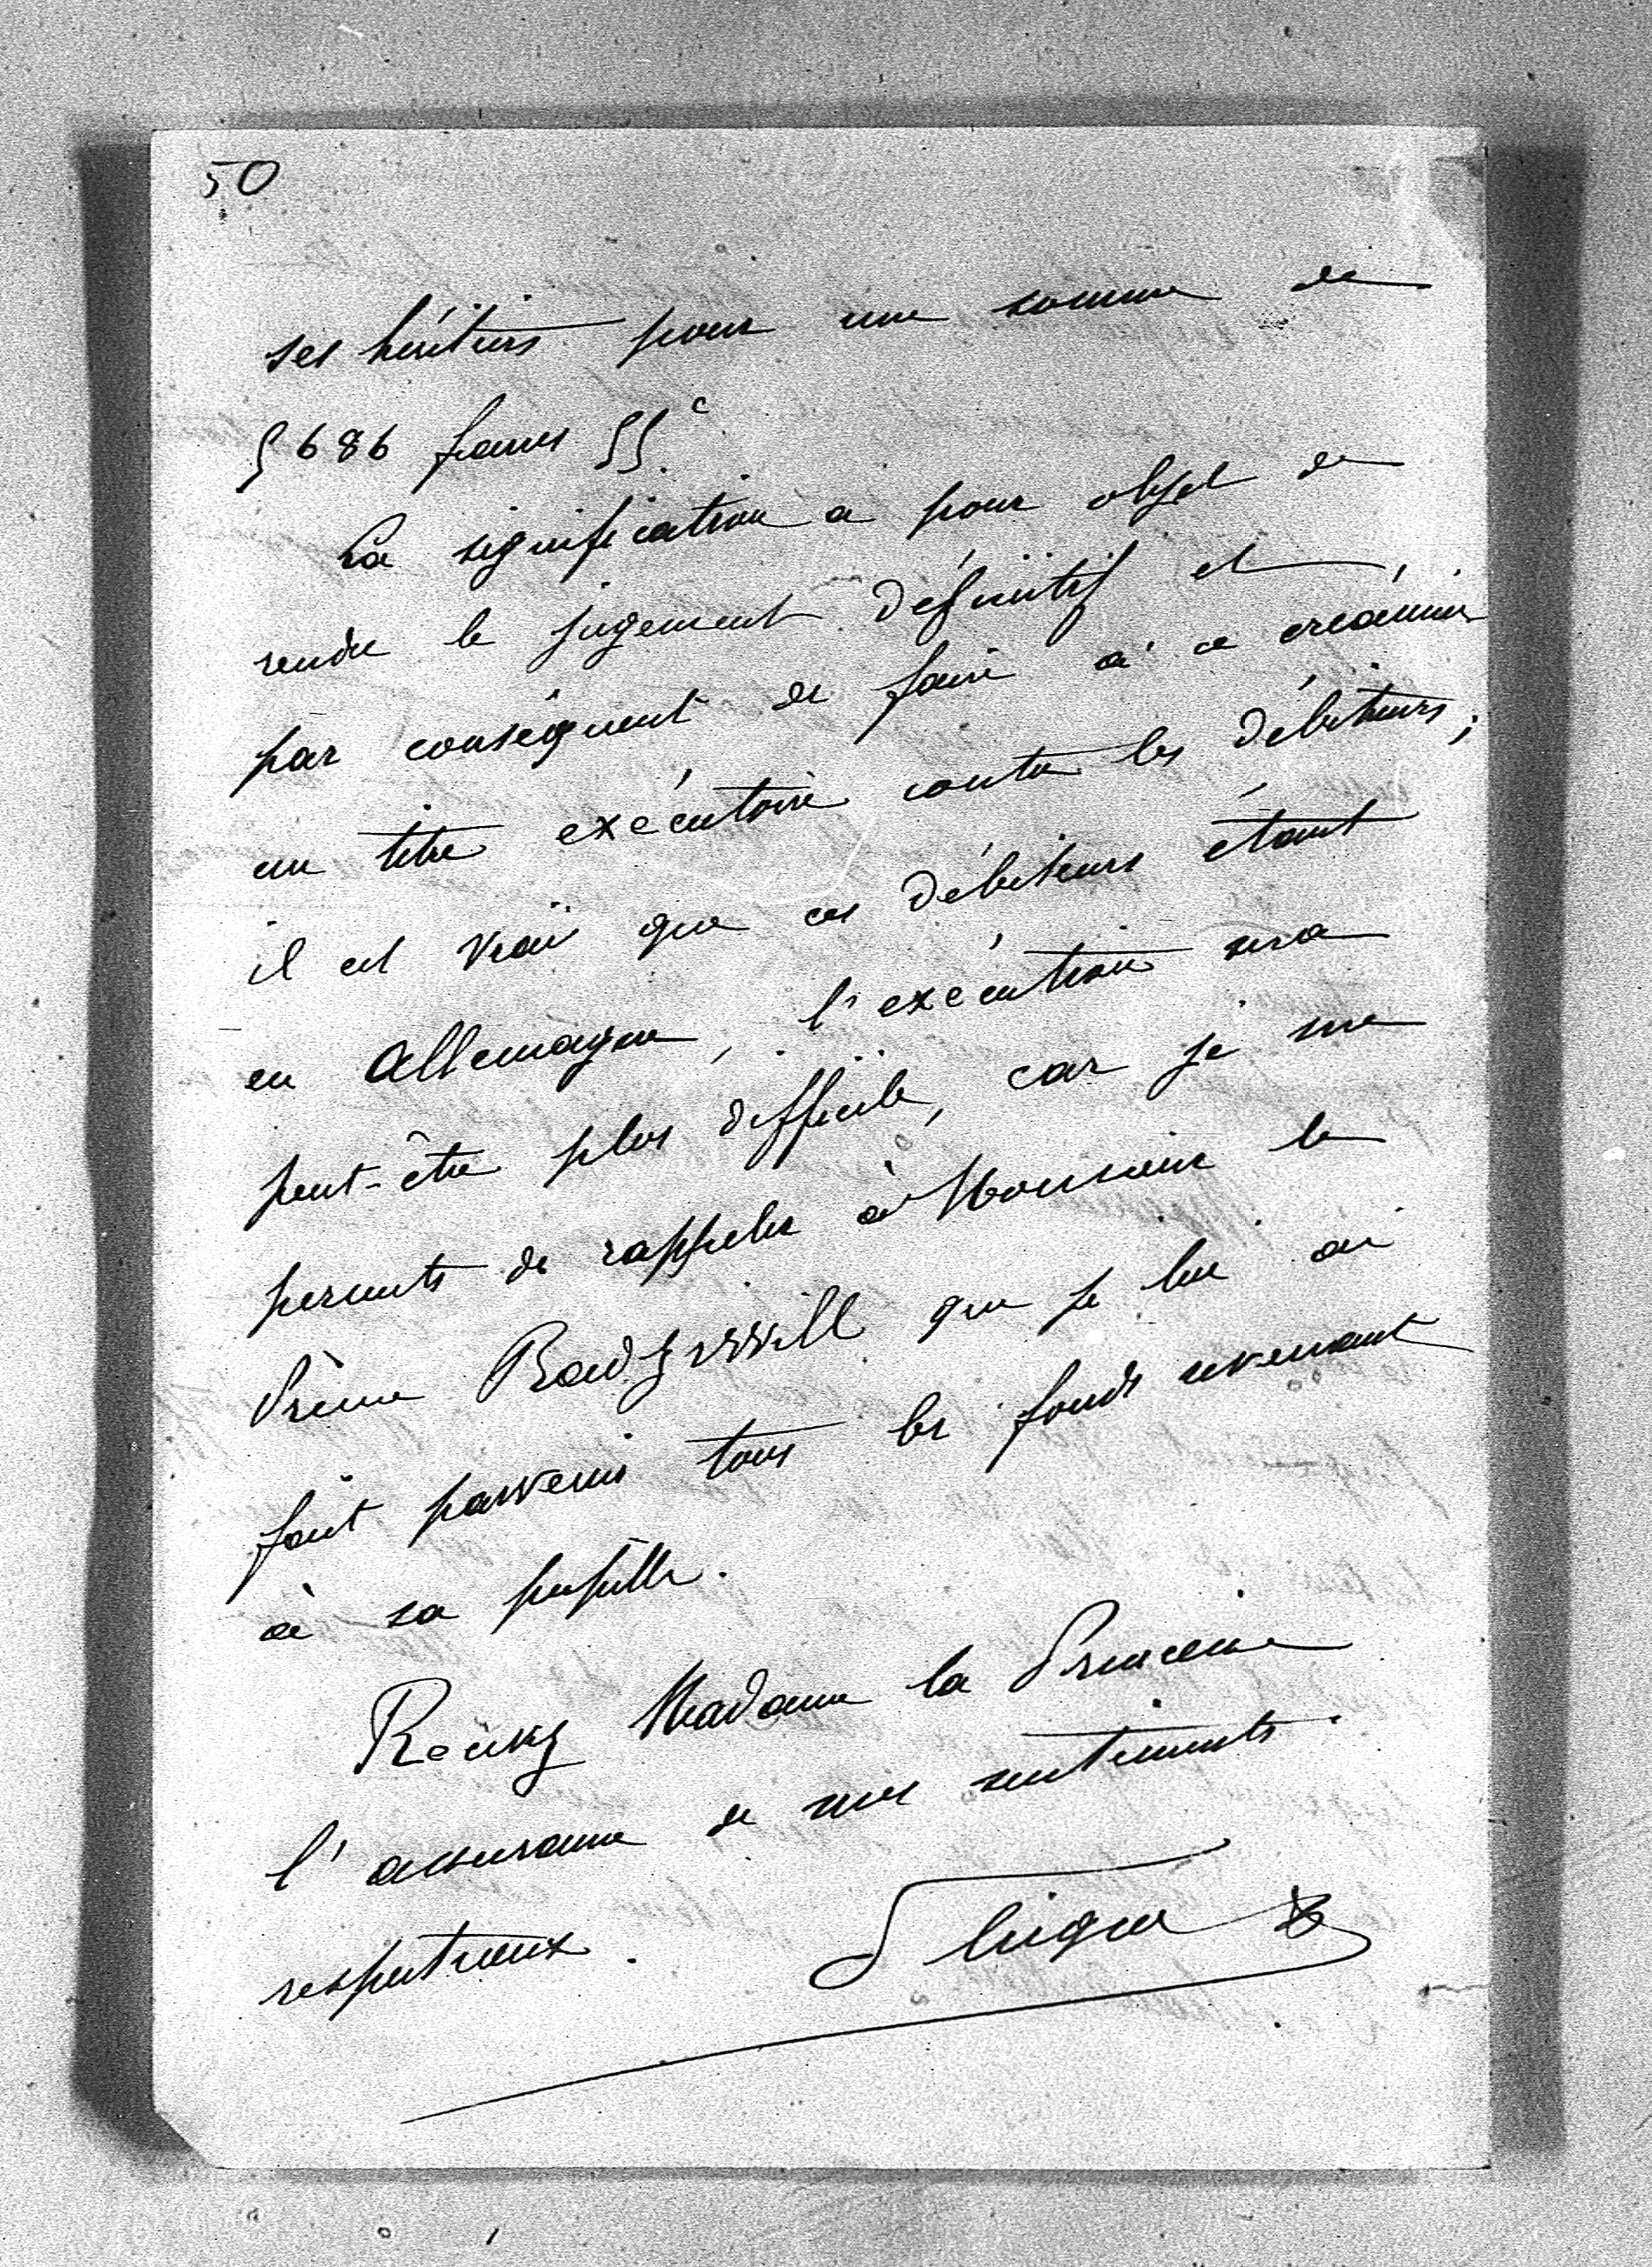 50
ses héritiers pour une somme de
5686 francs 55c.
La signification a pour objet de
rendre le jugement définitif et
par conséquent de faire à ce créancier
un titre exécutoire contre les débiteurs;
il est vrai que ces débiteurs étant
en Allemagne, l'exécution sera
peut-être plus difficile, car je me
permets de rappeler à Monsieur le
Prince Radziwill que je lui ai
fait parvenir tous les fonds revenant
à sa pupille.
Recevez Madame la Princesse
l'assurance de mes sentiments
respectueux.